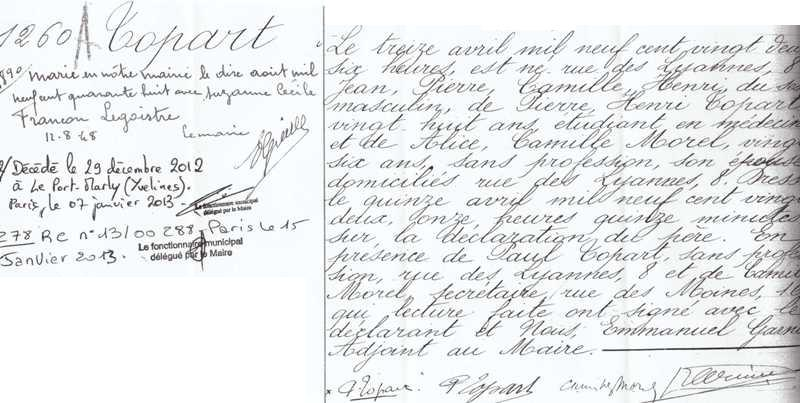 1260 A Topart
Marié en notre mairie le dix août mil
neuf cent quarante huit avec Suzanne Cécile
Francon Legoistre
12.8.48 Le maire
Décédé le 29 décembre 2012
à Le Port-Marly (Yvelines).
Paris, le 07 janvier 2013
Le fonctionnaire municipal
délégué par le Maire
278 RC n° 13/00288 - Paris le 15
Janvier 2013.
Le fonctionnaire municipal
délégué par le Maire
Le treize avril mil neuf cent vingt deux
six heures, est né rue des Lyannes, 8
Jean, Pierre, Camille, Henri, du sexe
masculin, de Pierre, Henri Topart
vingt huit ans, étudiant en médecin
et de Alice, Camille Morel, vingt
six ans, sans profession, son épouse
domiciliés rue des Lyannes, 8. Dressé
le quinze avril mil neuf cent vingt
deux, onze heures quinze minutes
sur la déclaration du père. En
présence de Paul Topart, sans profes
sion, rue des Lyannes, 8 et de Camille
Morel, secrétaire, rue des Moines,
qui lecture faite ont signé avec le
déclarant et Nous, Emmanuel
Adjoint au Maire.
PTopart PTopart Camille Morel